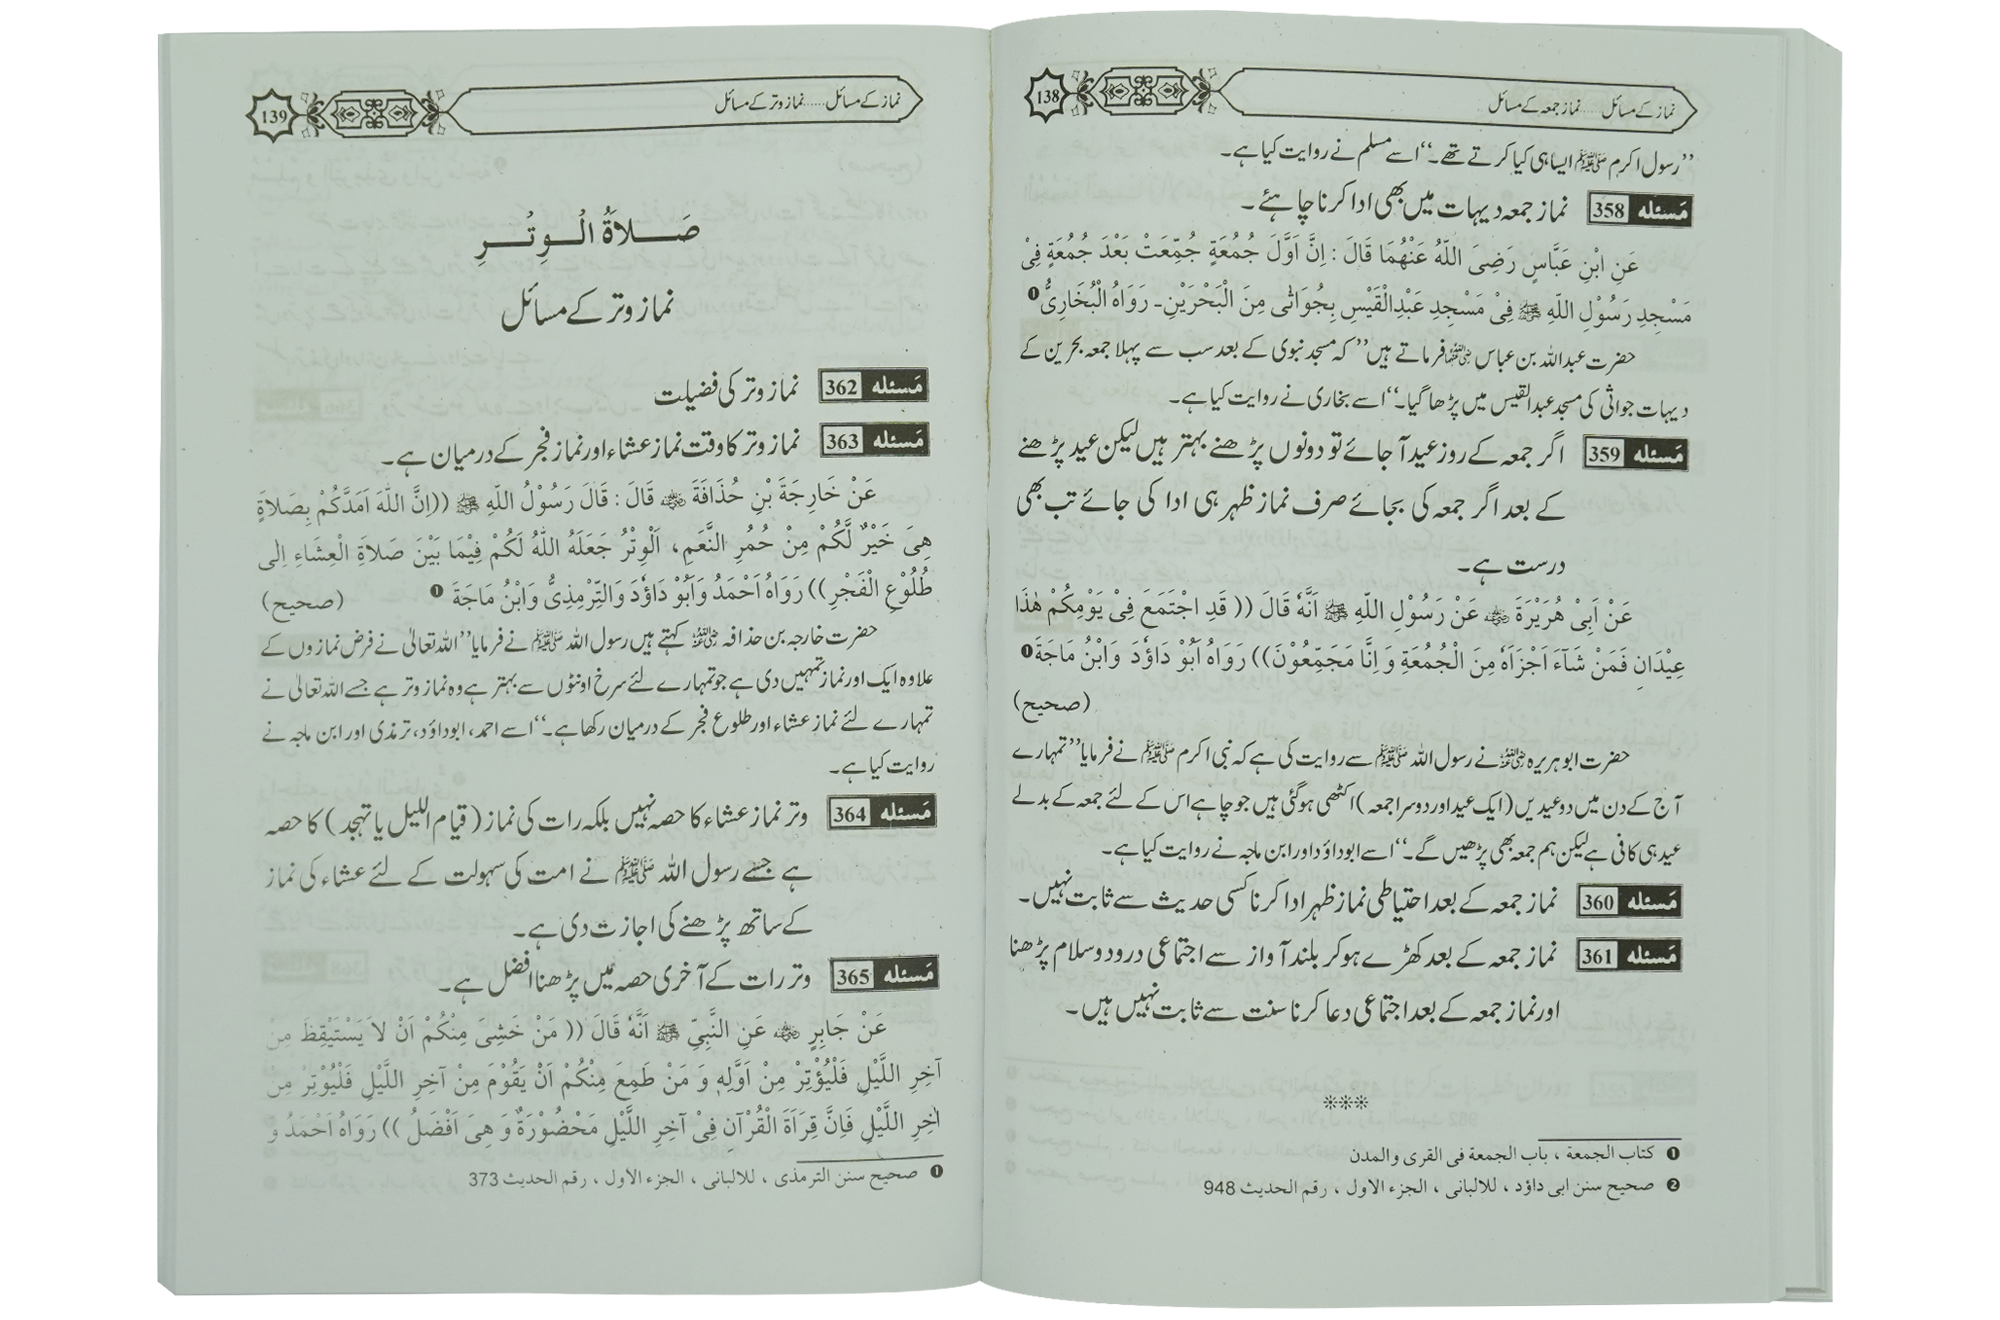 نماز کے مسائل......نماز جمعہ کے مسائل
138
’’رسول اکرم ﷺ ایسا ہی کیا کرتے تھے۔‘‘ اسے مسلم نے روایت کیا ہے۔
مَسئلہ 358 نماز جمعہ دیہات میں بھی ادا کرنا چاہئے۔
عَنِ ابْنِ عَبَّاسٍ رَضِیَ اللّٰہُ عَنْهُمَا قَالَ : اِنَّ اَوَّلَ جُمُعَةٍ جُمِّعَتْ بَعْدَ جُمُعَةٍ فِیْ
مَسْجِدِ رَسُوْلِ اللّٰہِ ﷺ فِیْ مَسْجِدِ عَبْدِالْقَیْسِ بِجُوَاثٰی مِنَ الْبَحْرَیْنِ۔ رَوَاهُ الْبُخَارِیُّ ❶
حضرت عبداللہ بن عباس رضی اللہ عنہما فرماتے ہیں’’ کہ مسجد نبوی کے بعد سب سے پہلا جمعہ بحرین کے
دیہات جواثی کی مسجد عبدالقیس میں پڑھا گیا۔‘‘ اسے بخاری نے روایت کیا ہے۔
مَسئلہ 359 اگر جمعہ کے روز عید آ جائے تو دونوں پڑھنے بہتر ہیں لیکن عید پڑھنے
کے بعد اگر جمعہ کی بجائے صرف نماز ظہر ہی ادا کی جائے تب بھی
درست ہے۔
عَنْ اَبِیْ هُرَیْرَةَ ؓ عَنْ رَسُوْلِ اللّٰہِ ﷺ اَنَّهٗ قَالَ (( قَدِ اجْتَمَعَ فِیْ یَوْمِکُمْ هٰذَا
عِیْدَانِ فَمَنْ شَآءَ اَجْزَاَهٗ مِنَ الْجُمُعَةِ وَ اِنَّا مَجَمِّعُوْنَ)) رَوَاهُ اَبُوْ دَاوٗدَ وَابْنُ مَاجَةَ ❶
(صحیح)
حضرت ابوہریرہ ؓ نے رسول اللہ ﷺ سے روایت کی ہے کہ نبی اکرم ﷺ نے فرمایا ’’تمہارے
آج کے دن میں دو عیدیں (ایک عید اور دوسرا جمعہ) اکٹھی ہو گئی ہیں جو چاہے اس کے لئے جمعہ کے بدلے
عید ہی کافی ہے لیکن ہم جمعہ بھی پڑھیں گے۔‘‘ اسے ابوداؤد اور ابن ماجہ نے روایت کیا ہے۔
مَسئلہ 360 نماز جمعہ کے بعد احتیاطی نماز ظہر ادا کرنا کسی حدیث سے ثابت نہیں۔
مَسئلہ 361 نماز جمعہ کے بعد کھڑے ہو کر بلند آواز سے اجتماعی درود و سلام پڑھنا
اور نماز جمعہ کے بعد اجتماعی دعا کرنا سنت سے ثابت نہیں ہیں۔
❊❊❊
❶ کتاب الجمعة ، باب الجمعة فی القری والمدن
❷ صحیح سنن ابی داؤد ، للالبانی ، الجزء الاول ، رقم الحدیث 948
نماز کے مسائل......نماز وتر کے مسائل
139
صَـــلاَةُ الْـــوِتْـــرِ
نماز وتر کے مسائل
مَسئلہ 362 نماز وتر کی فضیلت
مَسئلہ 363 نماز وتر کا وقت نماز عشاء اور نماز فجر کے درمیان ہے۔
عَنْ خَارِجَةَ بْنِ حُذَافَةَ ؓ قَالَ : قَالَ رَسُوْلُ اللّٰہِ ﷺ ((اِنَّ اللّٰہَ اَمَدَّکُمْ بِصَلاَةٍ
هِیَ خَیْرٌ لَّکُمْ مِنْ حُمُرِ النَّعَمِ، اَلْوِتْرُ جَعَلَهُ اللّٰہُ لَکُمْ فِیْمَا بَیْنَ صَلاَةِ الْعِشَاءِ اِلٰی
طُلُوْعِ الْفَجْرِ)) رَوَاهُ اَحْمَدُ وَاَبُوْ دَاوٗدَ وَالتِّرْمِذِیُّ وَابْنُ مَاجَةَ ❶ (صحیح)
حضرت خارجہ بن حذافہ ؓ کہتے ہیں رسول اللہ ﷺ نے فرمایا ’’اللہ تعالیٰ نے فرض نمازوں کے
علاوہ ایک اور نماز تمہیں دی ہے جو تمہارے لئے سرخ اونٹوں سے بہتر ہے وہ نماز وتر ہے جسے اللہ تعالیٰ نے
تمہارے لئے نماز عشاء اور طلوع فجر کے درمیان رکھا ہے۔‘‘ اسے احمد، ابوداؤد، ترمذی اور ابن ماجہ نے
روایت کیا ہے۔
مَسئلہ 364 وتر نماز عشاء کا حصہ نہیں بلکہ رات کی نماز (قیام اللیل یا تہجد) کا حصہ
ہے جسے رسول اللہ ﷺ نے امت کی سہولت کے لئے عشاء کی نماز
کے ساتھ پڑھنے کی اجازت دی ہے۔
مَسئلہ 365 وتر رات کے آخری حصہ میں پڑھنا افضل ہے۔
عَنْ جَابِرٍ ؓ عَنِ النَّبِیِّ ﷺ اَنَّهٗ قَالَ (( مَنْ خَشِیَ مِنْکُمْ اَنْ لاَ یَسْتَیْقِظَ مِنْ
آخِرِ اللَّیْلِ فَلْیُؤْتِرْ مِنْ اَوَّلِهٖ وَ مَنْ طَمِعَ مِنْکُمْ اَنْ یَقُوْمَ مِنْ آخِرِ اللَّیْلِ فَلْیُوْتِرْ مِنْ
اٰخِرِ اللَّیْلِ فَاِنَّ قِرَاَةَ الْقُرْآنِ فِیْ آخِرِ اللَّیْلِ مَحْضُوْرَةٌ وَ هِیَ اَفْضَلُ )) رَوَاهُ اَحْمَدُ وَ
❶ صحیح سنن الترمذی ، للالبانی ، الجزء الاول ، رقم الحدیث 373